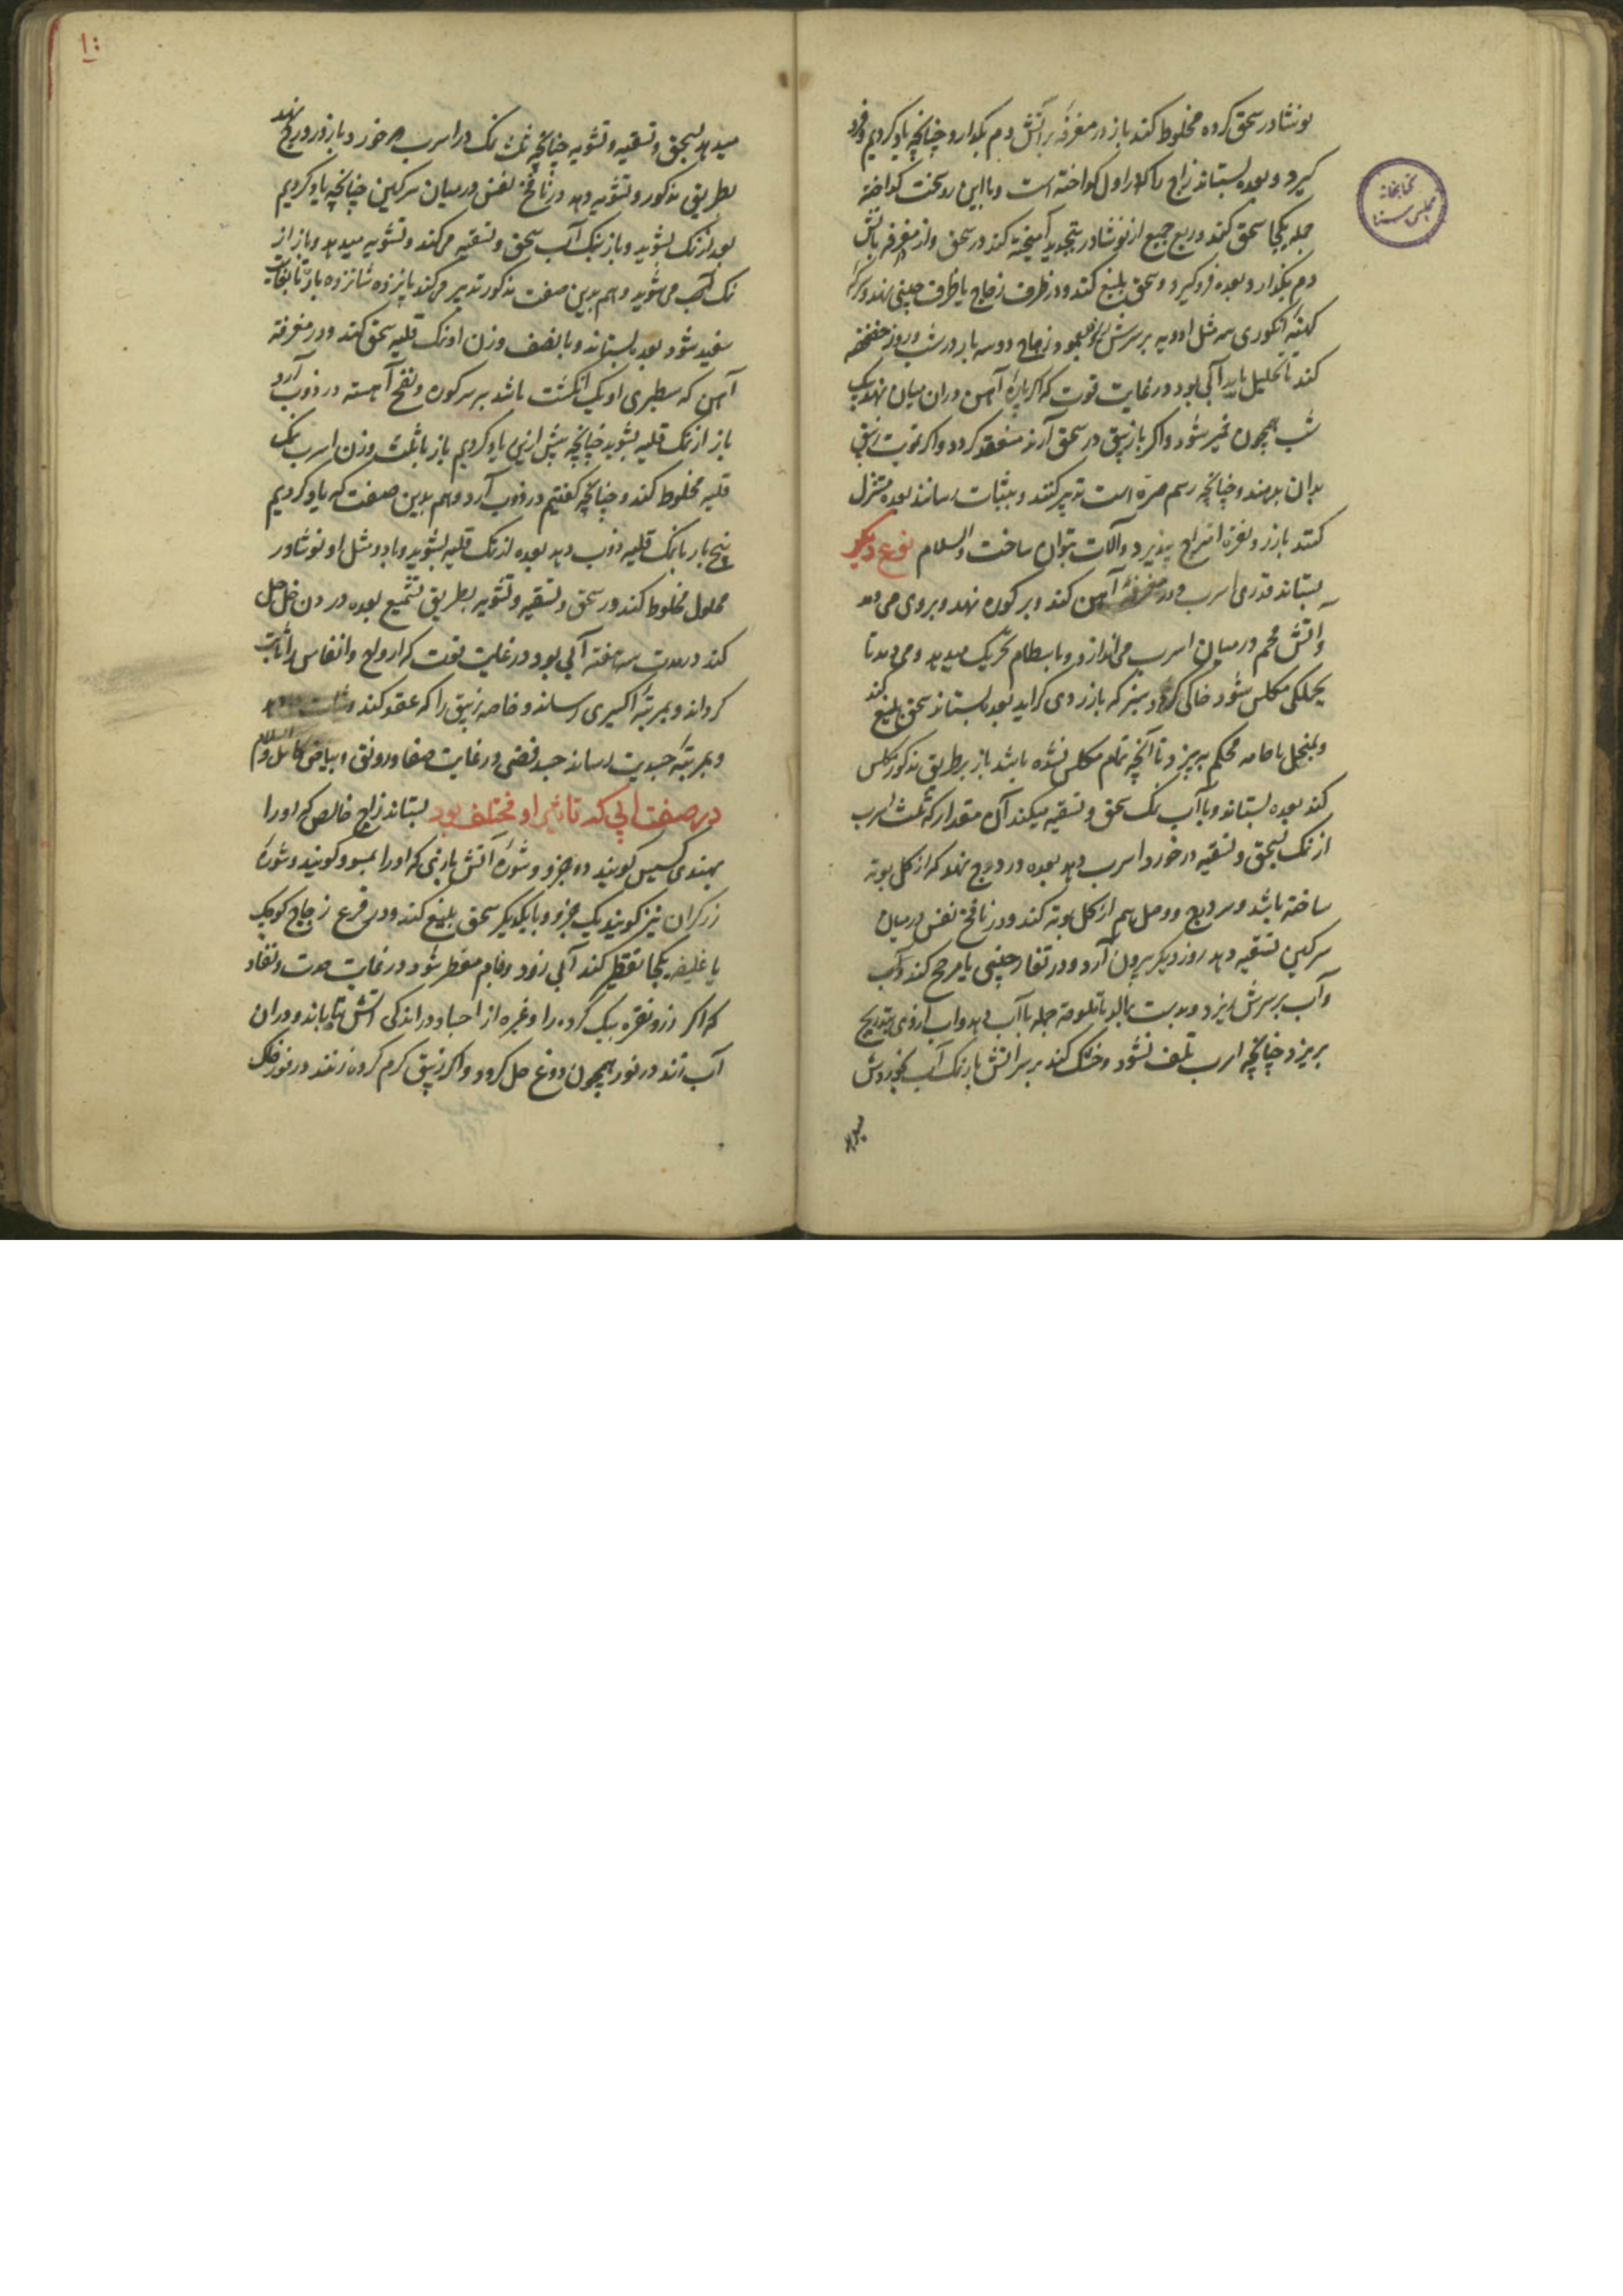 نوشادر سحق کرده مخلوط کند باز در مغرفه بر آتش دم بگدازد چنانچه یاد کردیم و فرو
گیرد و بعده بستاند زاج را که در اول گداخته است و با این روسخت گداخته
جمله یکجا سحق کند و ربع جمیع از نوشادر بتجدید آمیخته کند در سحق و در مغرفه باتش
دم بگدازد و بعده فرو گیرد و سحق بلیغ کند و در ظرف زجاج یا ظرف چینی نهد و سرکه
کهنه انگوری سه مثل ادویه بر سرش زجاج دو سه بار در شب و روز خضخضه
کند تا تحلیل یابد آبی بود در غایت قوت که اگر پاره آهن در آن میان نهند یک
شب همچون خمیر شود و اگر با زیبق در سحق آرند منعقد گردد و اگر
بدان بدهند و چنانچه رسم است تدبیر کنند و بثبات رسانند بعده مستنزل
کنند با زر و نقره امتزاج پذیرد و آلات بتوان ساخت والسلام نوع دیگر
بستاند قدری اسرب و در مغرفه آهن کند و بر کوره نهد و بروی می دمد
و آتش فحم در میان اسرب می اندازد و با سطام تحریک میدهد و می دمد تا
بجملگی مکلس شود خاکی گردد سبز که باز زردی گراید بعد بستاند سحق بلیغ کند
و بمنخل یا جامه محکم ببیزد تا آنچه تمام مکلس نشده باشد باز بر طریق مذکور مکلس
کند بعده بستاند و با آب نمک سحق و تسقیه میکند آن مقدار که ثلث اسرب
از نمک بسحق و تسقیه در خورد اسرب دهد بعده در درج نهد که از گل بوته
ساخته باشد و سر درج و وصل هم از گل بوته کند و در نافخ نفس در میان
سرگین تشقیه دهد روز دیگر بیرون آرد و در تغار چینی یا مرجح کند و آب
و آب بر سرش ریزد و بدست بمالد تا ملوحه جمله با آب دهد و آب از وی بتدریج
بریزد چنانچه اسرب تلف نشود و خشک کند بر سر آتش باز نمک آب بخوردش
میدهد
میدهد بسحق و تسقیه و تشویه چنانچه ثلث نمک در اسرب در خورد و باز در درج نهد
بطریق مذکور و تشویه دهد در نافخ نفس در میان سرگین چنانچه یاد کردیم
بعد از نمک بشوید و باز بنمک آب سحق و تسقیه می کند و تشویه میدهد و باز از
نمک آب می شوید و هم بدین صفت مذکور تدبیر می کند پانزده شانزده بار تا بغایت
سفید شود بعده بستاند و با نصف وزن او نمک قلیه سحق کند و در مغرفه
آهن که سطبری او یک انگشت باشد بر سر کوره و نفخ آهسته در ذوب آرد
باز از نمک قلیه بشوید چنانچه پیش ازین یاد کردیم باز با ثلث وزن اسرب نمک
قلیه مخلوط کند و چنانچه گفتیم در ذوب آرد و هم بدین صفت که یاد کردیم
پنج بار با نمک قلیه ذوب دهد بعده از نمک قلیه بشوید و با دو مثل او نوشادر
محلول مخلوط کند در سحق و تسقیه و تشویه بطریق تشمیع بعده در دن خل حل
کند در مدت سه هفته آبی بود در غایت قوت که ارواح و انفاس را ثابت
گرداند و بمرتبه اکسیری رساند و خاصه زیبق را که عقد کند و ثبات دهد
و بمرتبه جسدیت رساند جسد فضی در غایت صفا و رونق و بیاض کامل والسلام
در صفت ابی که تاثیر او مختلف بود بستاند زاج خالص که او را
بهندی کسیس گویند دو جزو و شوره آتش بازی که او را
زرگران نیز گویند یک جزو و با یکدیگر سحق بلیغ کند و در قرع زجاج کوچک
یا غلیظ یکجا تقطیر کند آبی زرد فام مقطر شود در غایت حدت و نفاد
که اگر زر و نقره بیک کرده را و غیره از اجساد در اندکی آتش تاباند و در آن
آب زند در فور همچون دوغ حل گردد و اگر زیبق گرم کرده زنند در فور خاک
کتابخانه
مجلس سنا